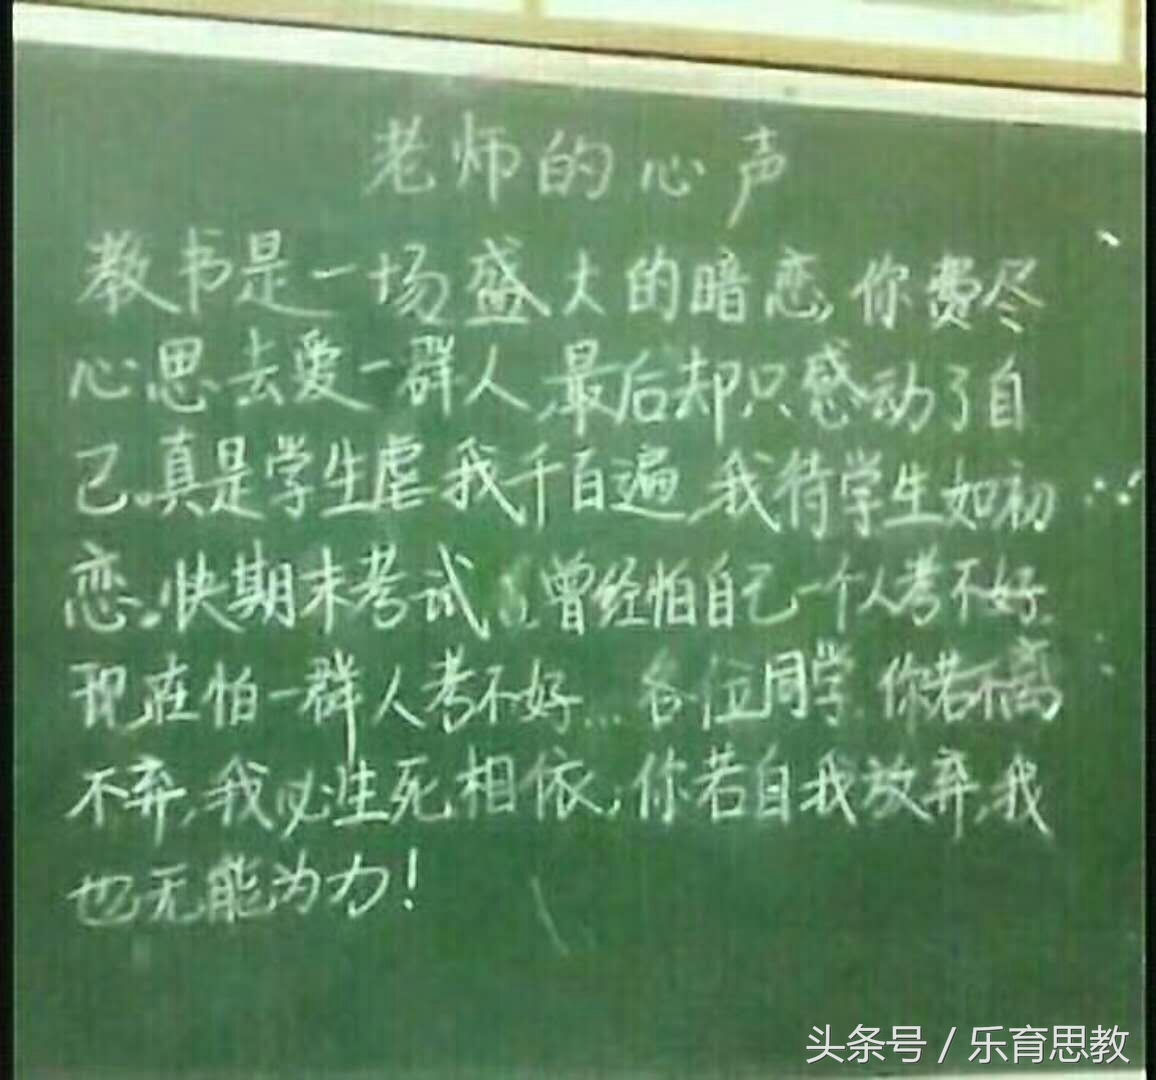 老师的心声
教书是一场盛大的暗恋,你费尽
心思去爱一群人,最后却只感动了自
己。真是学生虐我千百遍,我待学生如初
恋。快期末考试 曾经怕自己一个人考不好.
现在怕一群人考不好…各位同学.你若不离
不弃,我必生死相依,你若自我放弃,我
也无能为力!
头条号 / 乐育思教